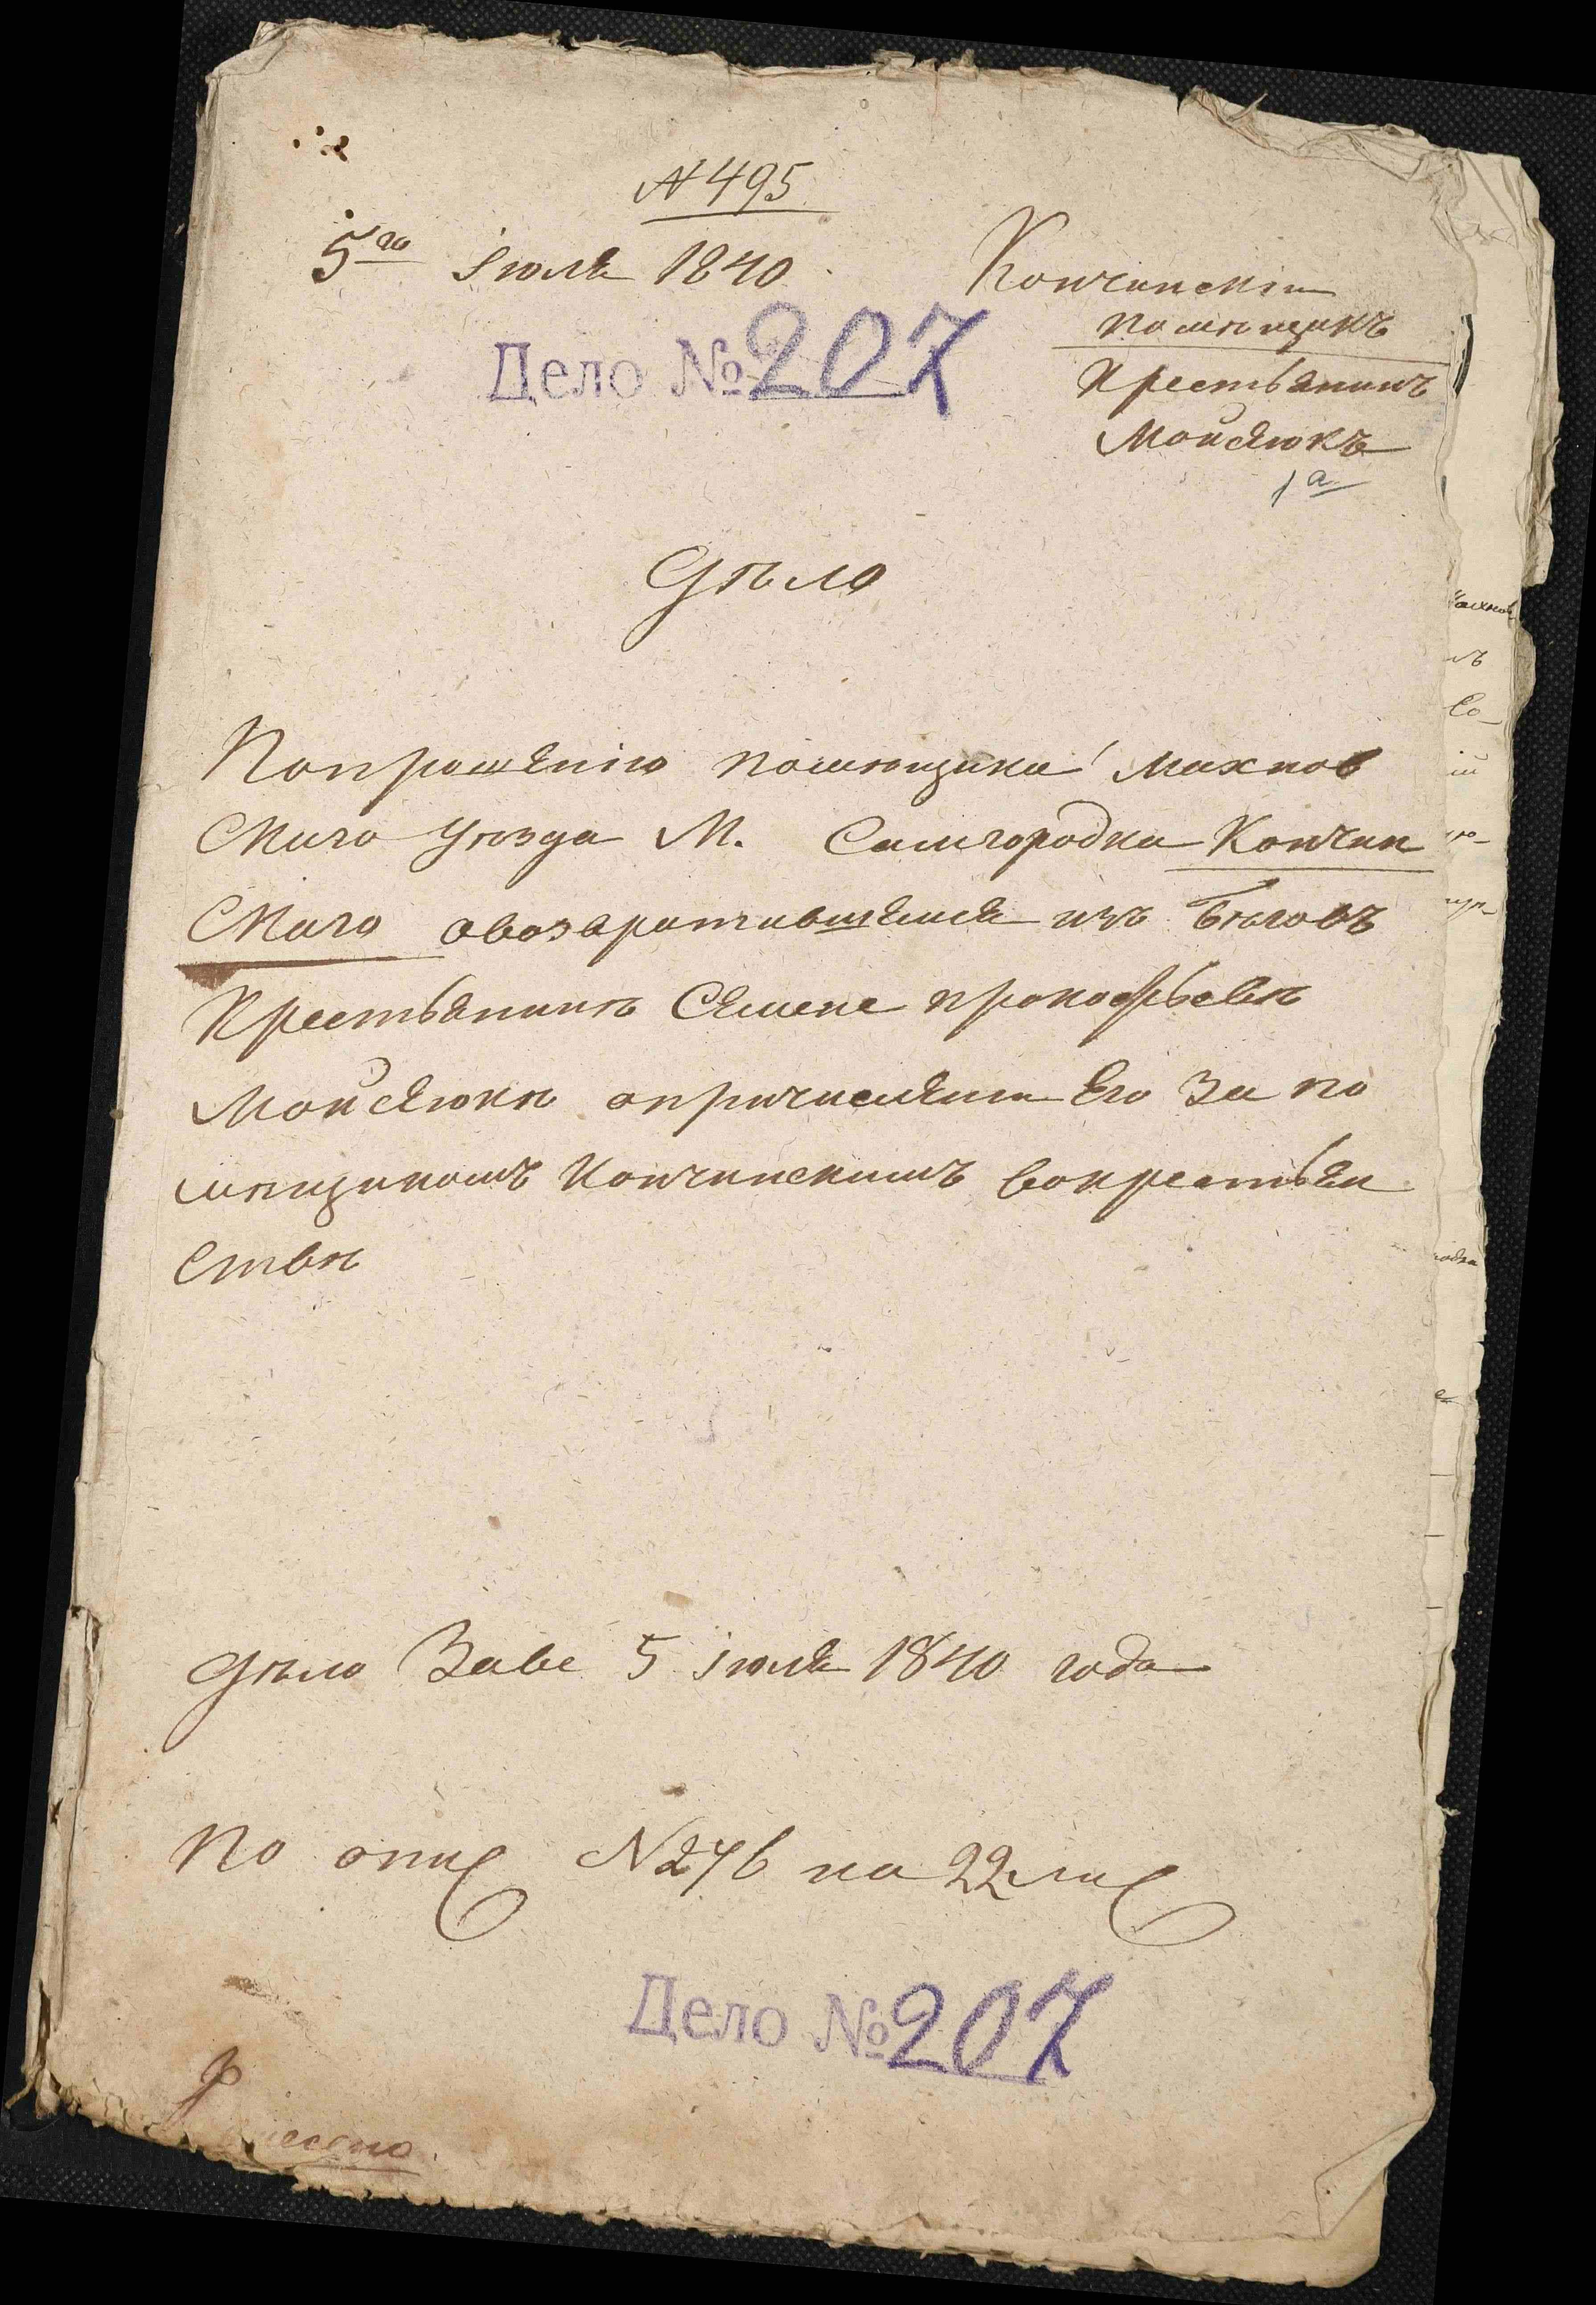 № 495
5го Іюля 1840
Кончинскій
помѣщикъ
Дело № 207
Крестьянинъ
Мойсеюкъ
1а
Дѣло
Попрошенію помѣщика Махнов
скаго уѣзда М. Самгородка Кончин
скаго овозвратившемся изъ бѣговъ
Крестьянинѣ Семене прокофьевѣ
Мойсеюкѣ опричисленіи Его За по
мѣщикомъ Кончинскимъ вокрестьян
ствѣ
дѣло Заве 5 іюля 1840 года
По опис № 276 на 22 лис
Дело № 207